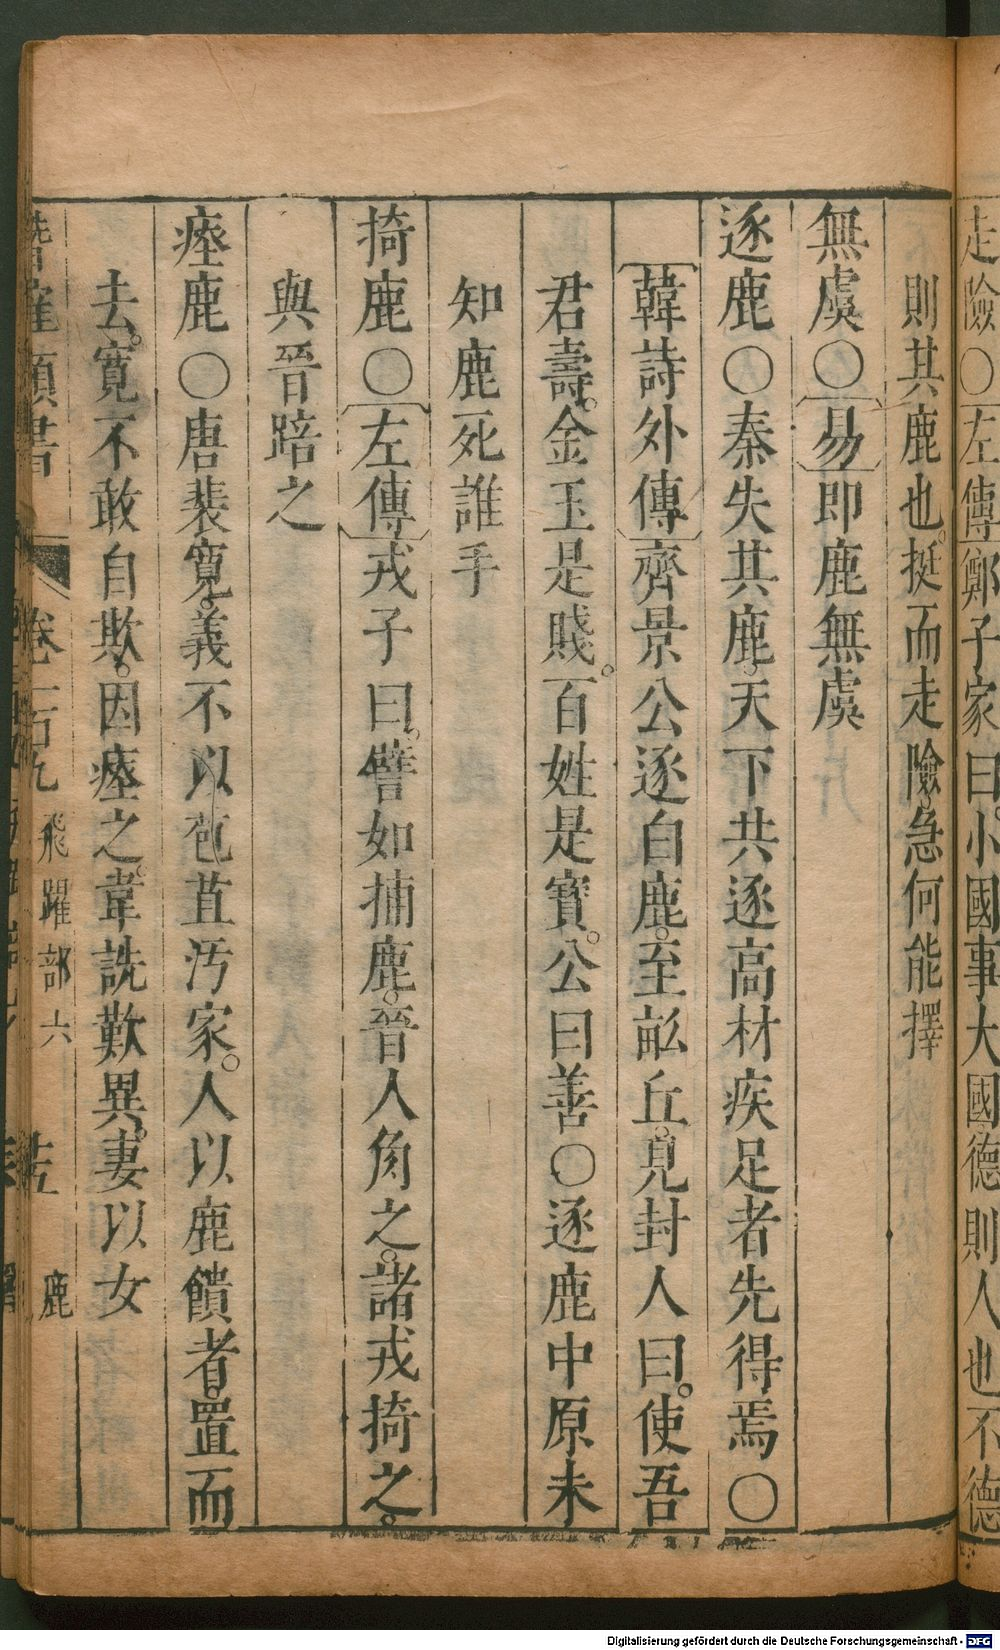 走險○左傳鄭子家曰小國事大國德則人也不德
則其鹿也。挺而走險。急何能擇
無虞○易即鹿無虞
逐鹿○秦失其鹿。天下共逐高材疾足者先得焉○
韓詩外傳齊景公逐白鹿。至𪉖丘。見封人曰。使吾
君壽。金玉是賤。百姓是寶。公曰善○逐鹿中原未
知鹿死誰手
掎鹿○左傳戎子曰。譬如捕鹿。晉人角之。諸戎掎之。
與晉踣之
瘞鹿○唐裴寬。義不以苞苴汚家。人以鹿饋者。置而
去。寬不敢自欺。因瘞之。韋詵歎異。妻以女
類書 卷一百九 飛躍部六 鹿
Digitalisierung gefördert durch die Deutsche Forschungsgemeinschaft - DFG